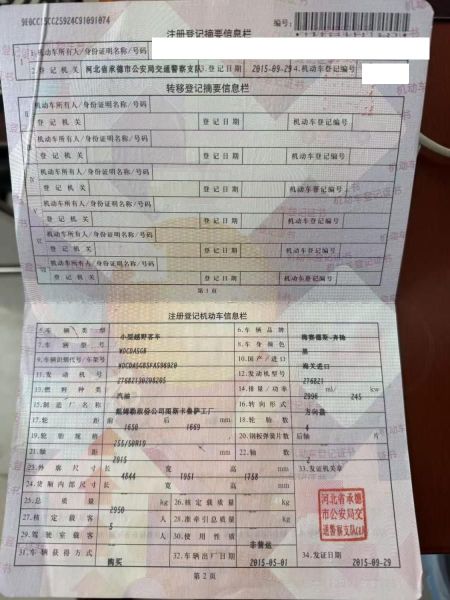 9E0CC15CC25924C91091074
编号:
注册登记摘要信息栏
1.机动车所有人/身份证明名称/号码
2.登记机关 河北省承德市公安局交通警察支队 3.登记日期 2015-09-29 4.机动车登记编号
转移登记摘要信息栏
II 机动车所有人/身份证明名称/号码
登记机关 登记日期 机动车登记编号
III 机动车所有人/身份证明名称/号码
登记机关 登记日期 机动车登记编号
IV 机动车所有人/身份证明名称/号码
登记机关 登记日期 机动车登记编号
V 机动车所有人/身份证明名称/号码
登记机关 登记日期 机动车登记编号
VI 机动车所有人/身份证明名称/号码
登记机关 登记日期 机动车登记编号
VII 机动车所有人/身份证明名称/号码
登记机关 登记日期 机动车登记编号
第1页
注册登记机动车信息栏
5.车辆类型 小型越野客车 6.车辆品牌 梅赛德斯-奔驰
7.车辆型号 WDCDA5GB 8.车身颜色 黑
9.车辆识别代号/车架号 10.国产/进口 海关进口
11.发动机号 27682130208205 12.发动机型号 276821
13.燃料种类 汽油 14.排量/功率 2996 ml/ 245 kw
15.制造厂名称 16.转向形式 方向盘
17.轮距 前 1650 后 1669 mm 18.轮胎数 4
19.轮胎规格 255/50R19 20.钢板弹簧片数 后轴 片
21.轴距 2915 mm 22.轴数
23.外廓尺寸 长 4844 宽 1951 高 1758 mm 33.发证机关章
24.货厢内部尺寸 长 宽 高 mm
25.总质量 2950 kg 26.核定载质量 kg
27.核定载客 5 人 28.准牵引总质量 kg
29.驾驶室载客 人 30.使用性质 非营运
31.车辆获得方式 购买 32.车辆出厂日期 2015-05-01 34.发证日期 2015-09-29
河北省承德
市公安局交
通警察支队
第2页